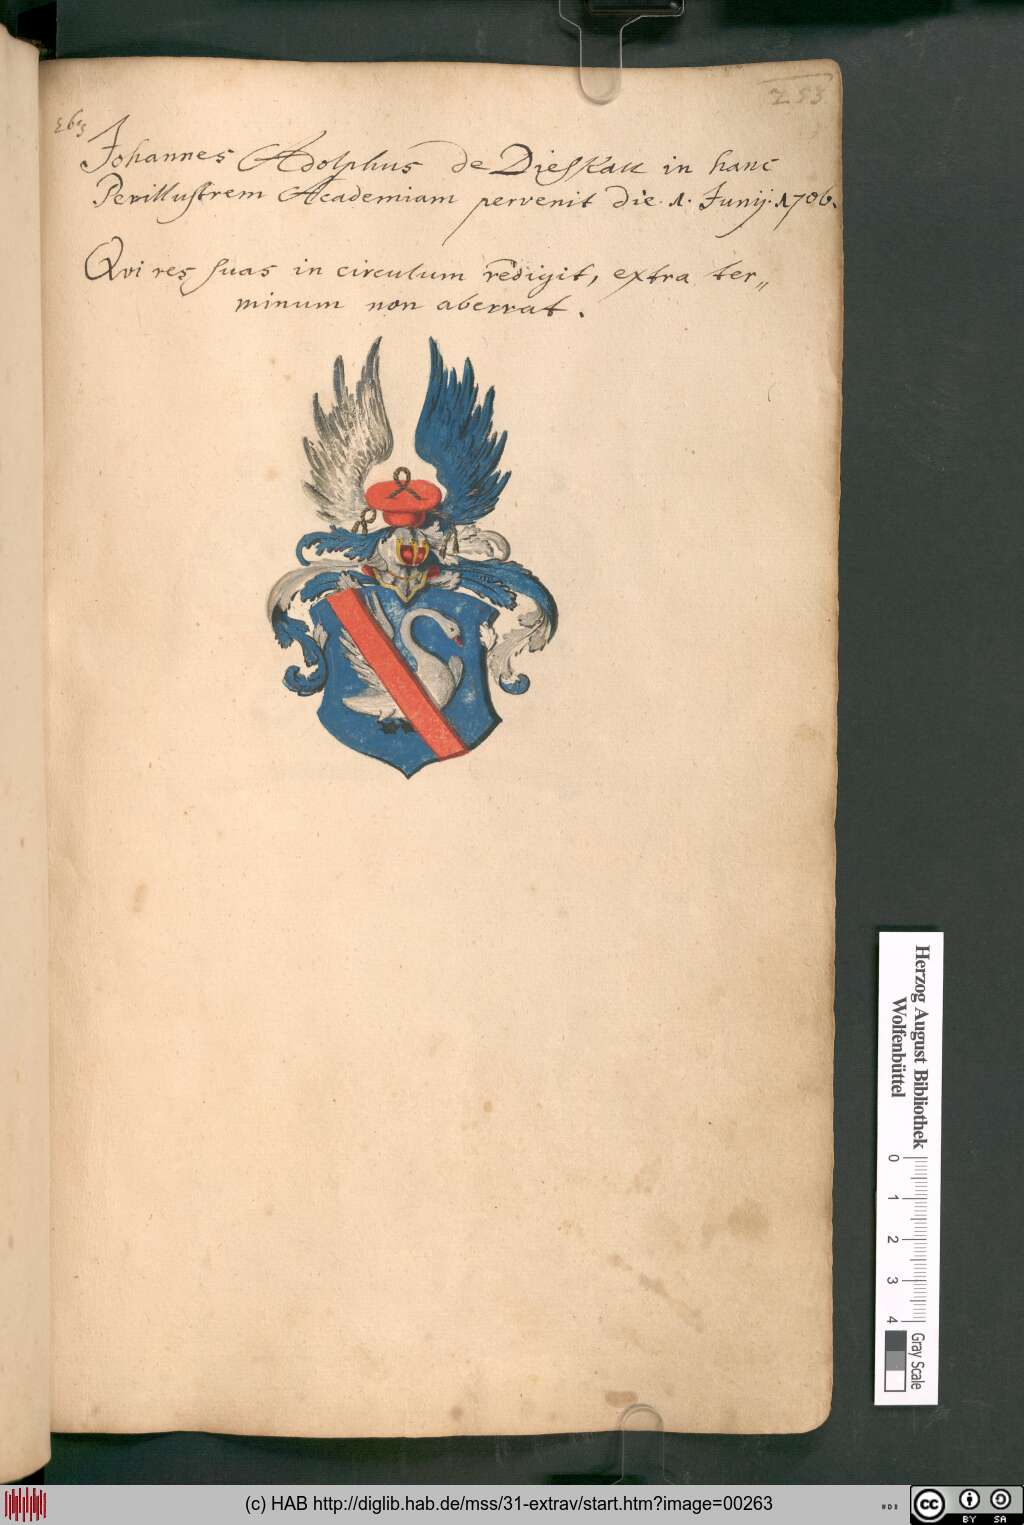 253
363
Johannes Adolphus de Dieskau in hanc
Perillustrem Academiam pervenit die. 1. Junij. 1706.
Qvi res suas in circulum redigit, extra ter„
minum non aberrat.
Herzog August Bibliothek
Wolfenbüttel
0 1 2 3 4
Gray Scale
(c) HAB http://diglib.hab.de/mss/31-extrav/start.htm?image=00263
cc BY SA